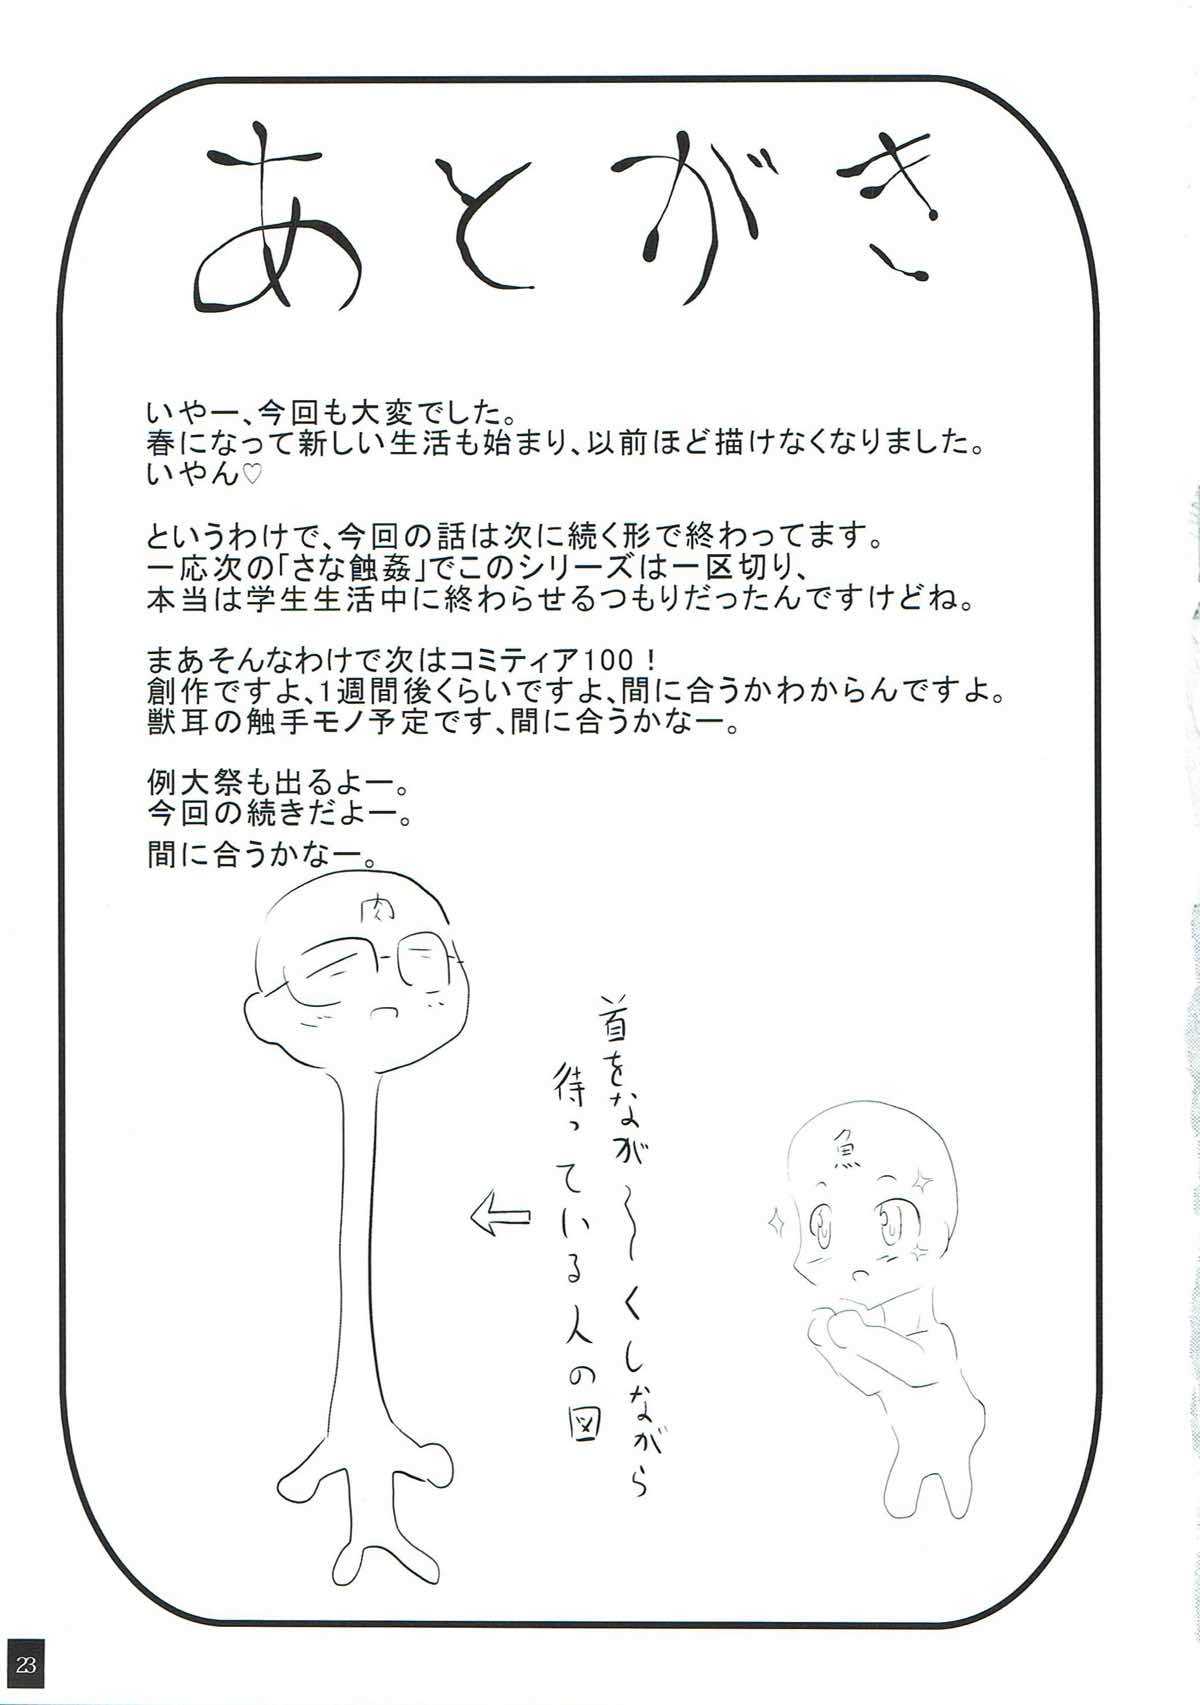 あとがき
いやー、今回も大変でした。
春になって新しい生活も始まり、以前ほど描けなくなりました。
いやん♡
というわけで、今回の話は次に続く形で終わってます。
一応次の｢さな蝕姦｣でこのシリーズは一区切り、
本当は学生生活中に終わらせるつもりだったんですけどね。
まあそんなわけで次はコミティア100！
創作ですよ、1週間後くらいですよ、間に合うかわからんですよ。
獣耳の触手モノ予定です、間に合うかなー。
例大祭も出るよー。
今回の続きだよー。
間に合うかなー。
肉
首をなが〜〜くしながら
待っている人の図
魚
23